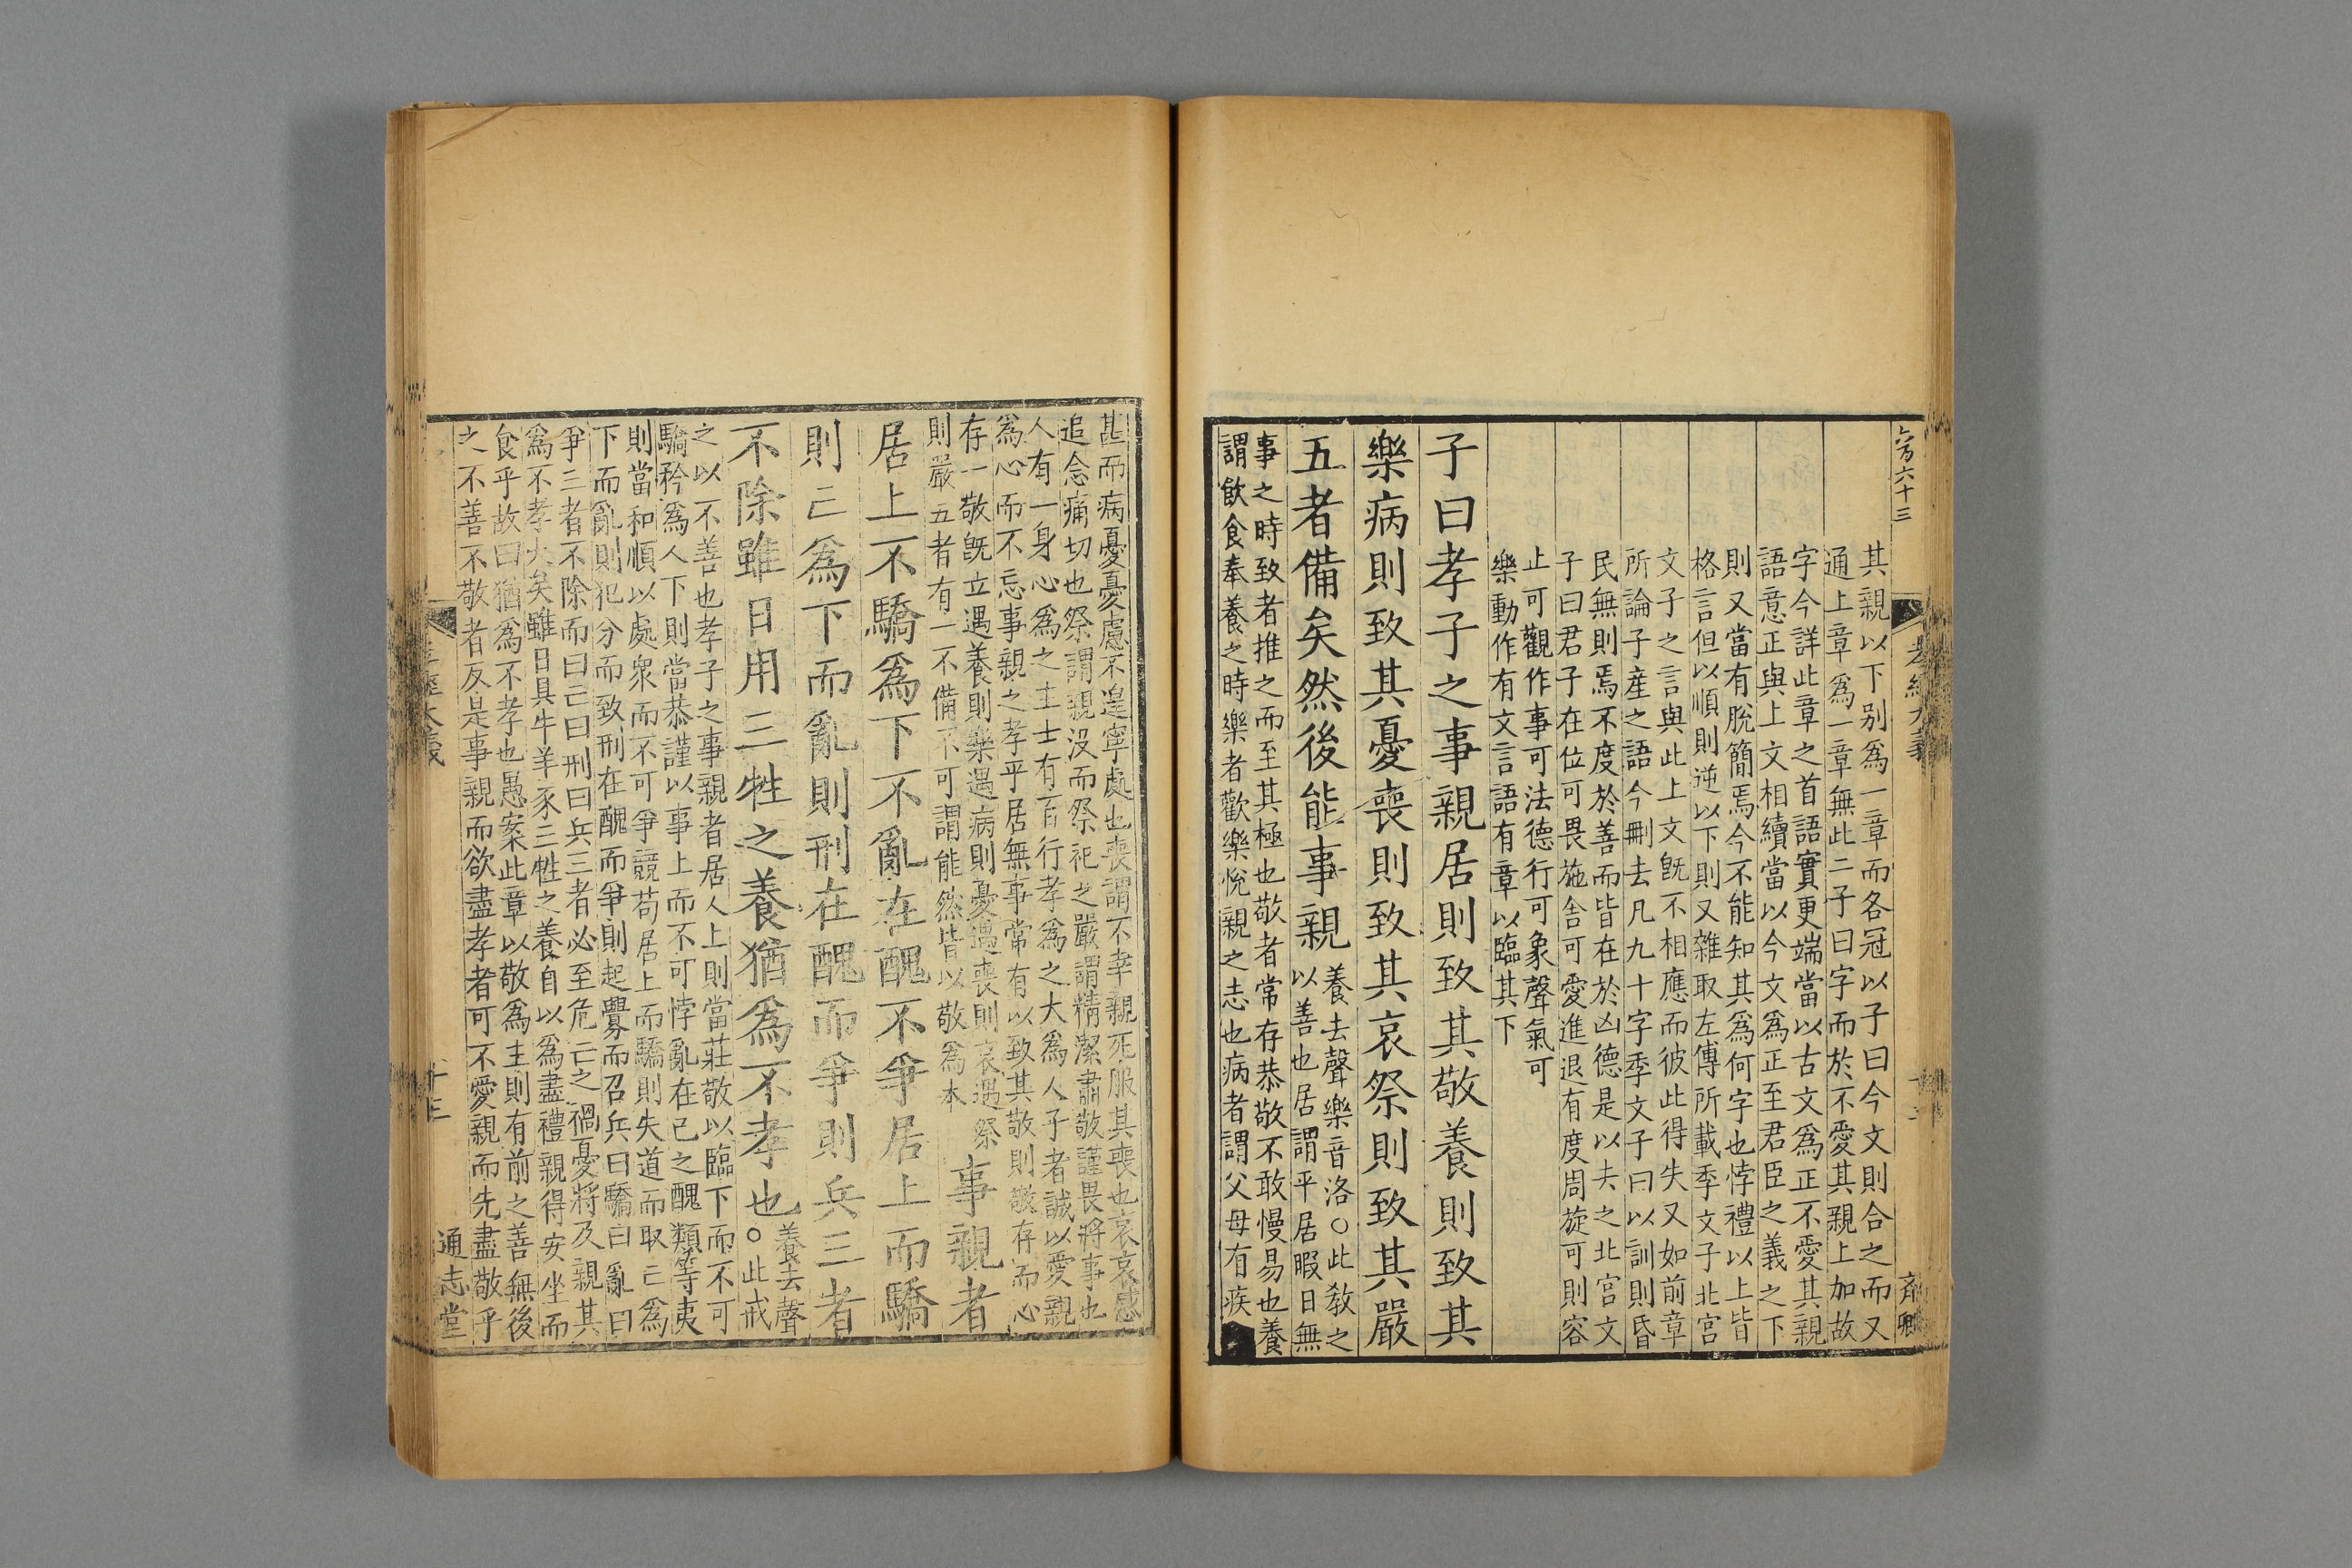 六百六十三
其親以下别爲一章而各冠以子曰今文則合之而又
通上章爲一章無此二子曰字而於不愛其親上加故
字今詳此章之首語實更端當以古文爲正不愛其親
語意正與上文相續當以今文爲正至君臣之義之下
則又當有脫簡焉今不能知其爲何字也悖禮以上皆
格言但以順則逆以下則又雜取左傳所載季文子北宮
文子之言與此上文旣不相應而彼此得失又如前章
所論子産之語今刪去凡九十字季文子曰以訓則昏
民無則焉不度於善而皆在於凶德是以去之北宮文
子曰君子在位可畏施舍可愛進退有度周旋可則容
止可觀作事可法德行可象聲氣可
樂動作有文言語有章以臨其下
子曰孝子之事親居則致其敬養則致其
樂病則致其憂喪則致其哀祭則致其嚴
五者備矣然後能事親
養去聲樂音洛○此敎之
以善也居謂平居暇日無
事之時致者推之而至其極也敬者常存恭敬不敢慢易也養
謂飮食奉養之時樂者歡樂悅親之志也病者謂父母有疾
孝經大義
齊卿
甚而病憂憂慮不遑寧處也喪謂不幸親死服其喪也哀哀感
追念痛切也祭謂親沒而祭祀之嚴謂精潔肅敬謹畏將事也
人有一身心爲之主士有百行孝爲之大爲人子者誠以愛親
爲心而不忘事親之孝乎居無事常有以致其敬則敬存而心
存一敬旣立遇養則樂遇病則憂遇喪則哀遇祭
則嚴五者有一不備不可謂能然皆以敬爲本
事親者
居上不驕爲下不亂在醜不爭居上而驕
則亡爲下而亂則刑在醜而爭則兵三者
不除雖日用三牲之養猶爲不孝也
養去聲
○此戒
之以不善也孝子之事親者居人上則當莊敬以臨下而不可
驕矜爲人下則當恭謹以事上而不可悖亂在己之醜類等夷
則當和順以處衆而不可爭競苟居上而驕則失道而取亡爲
下而亂則犯分而致刑在醜而爭則起釁而召兵曰驕曰亂曰
爭三者不除而曰亡曰刑曰兵三者必至危亡之禍憂將及親其
爲不孝大矣雖日具牛羊豕三牲之養自以爲盡禮親得安坐而
食乎故曰猶爲不孝也愚案此章以敬爲主則有前之善無後
之不善不敬者反是事親而欲盡孝者可不愛親而先盡敬乎
孝經大義
十三
通志堂